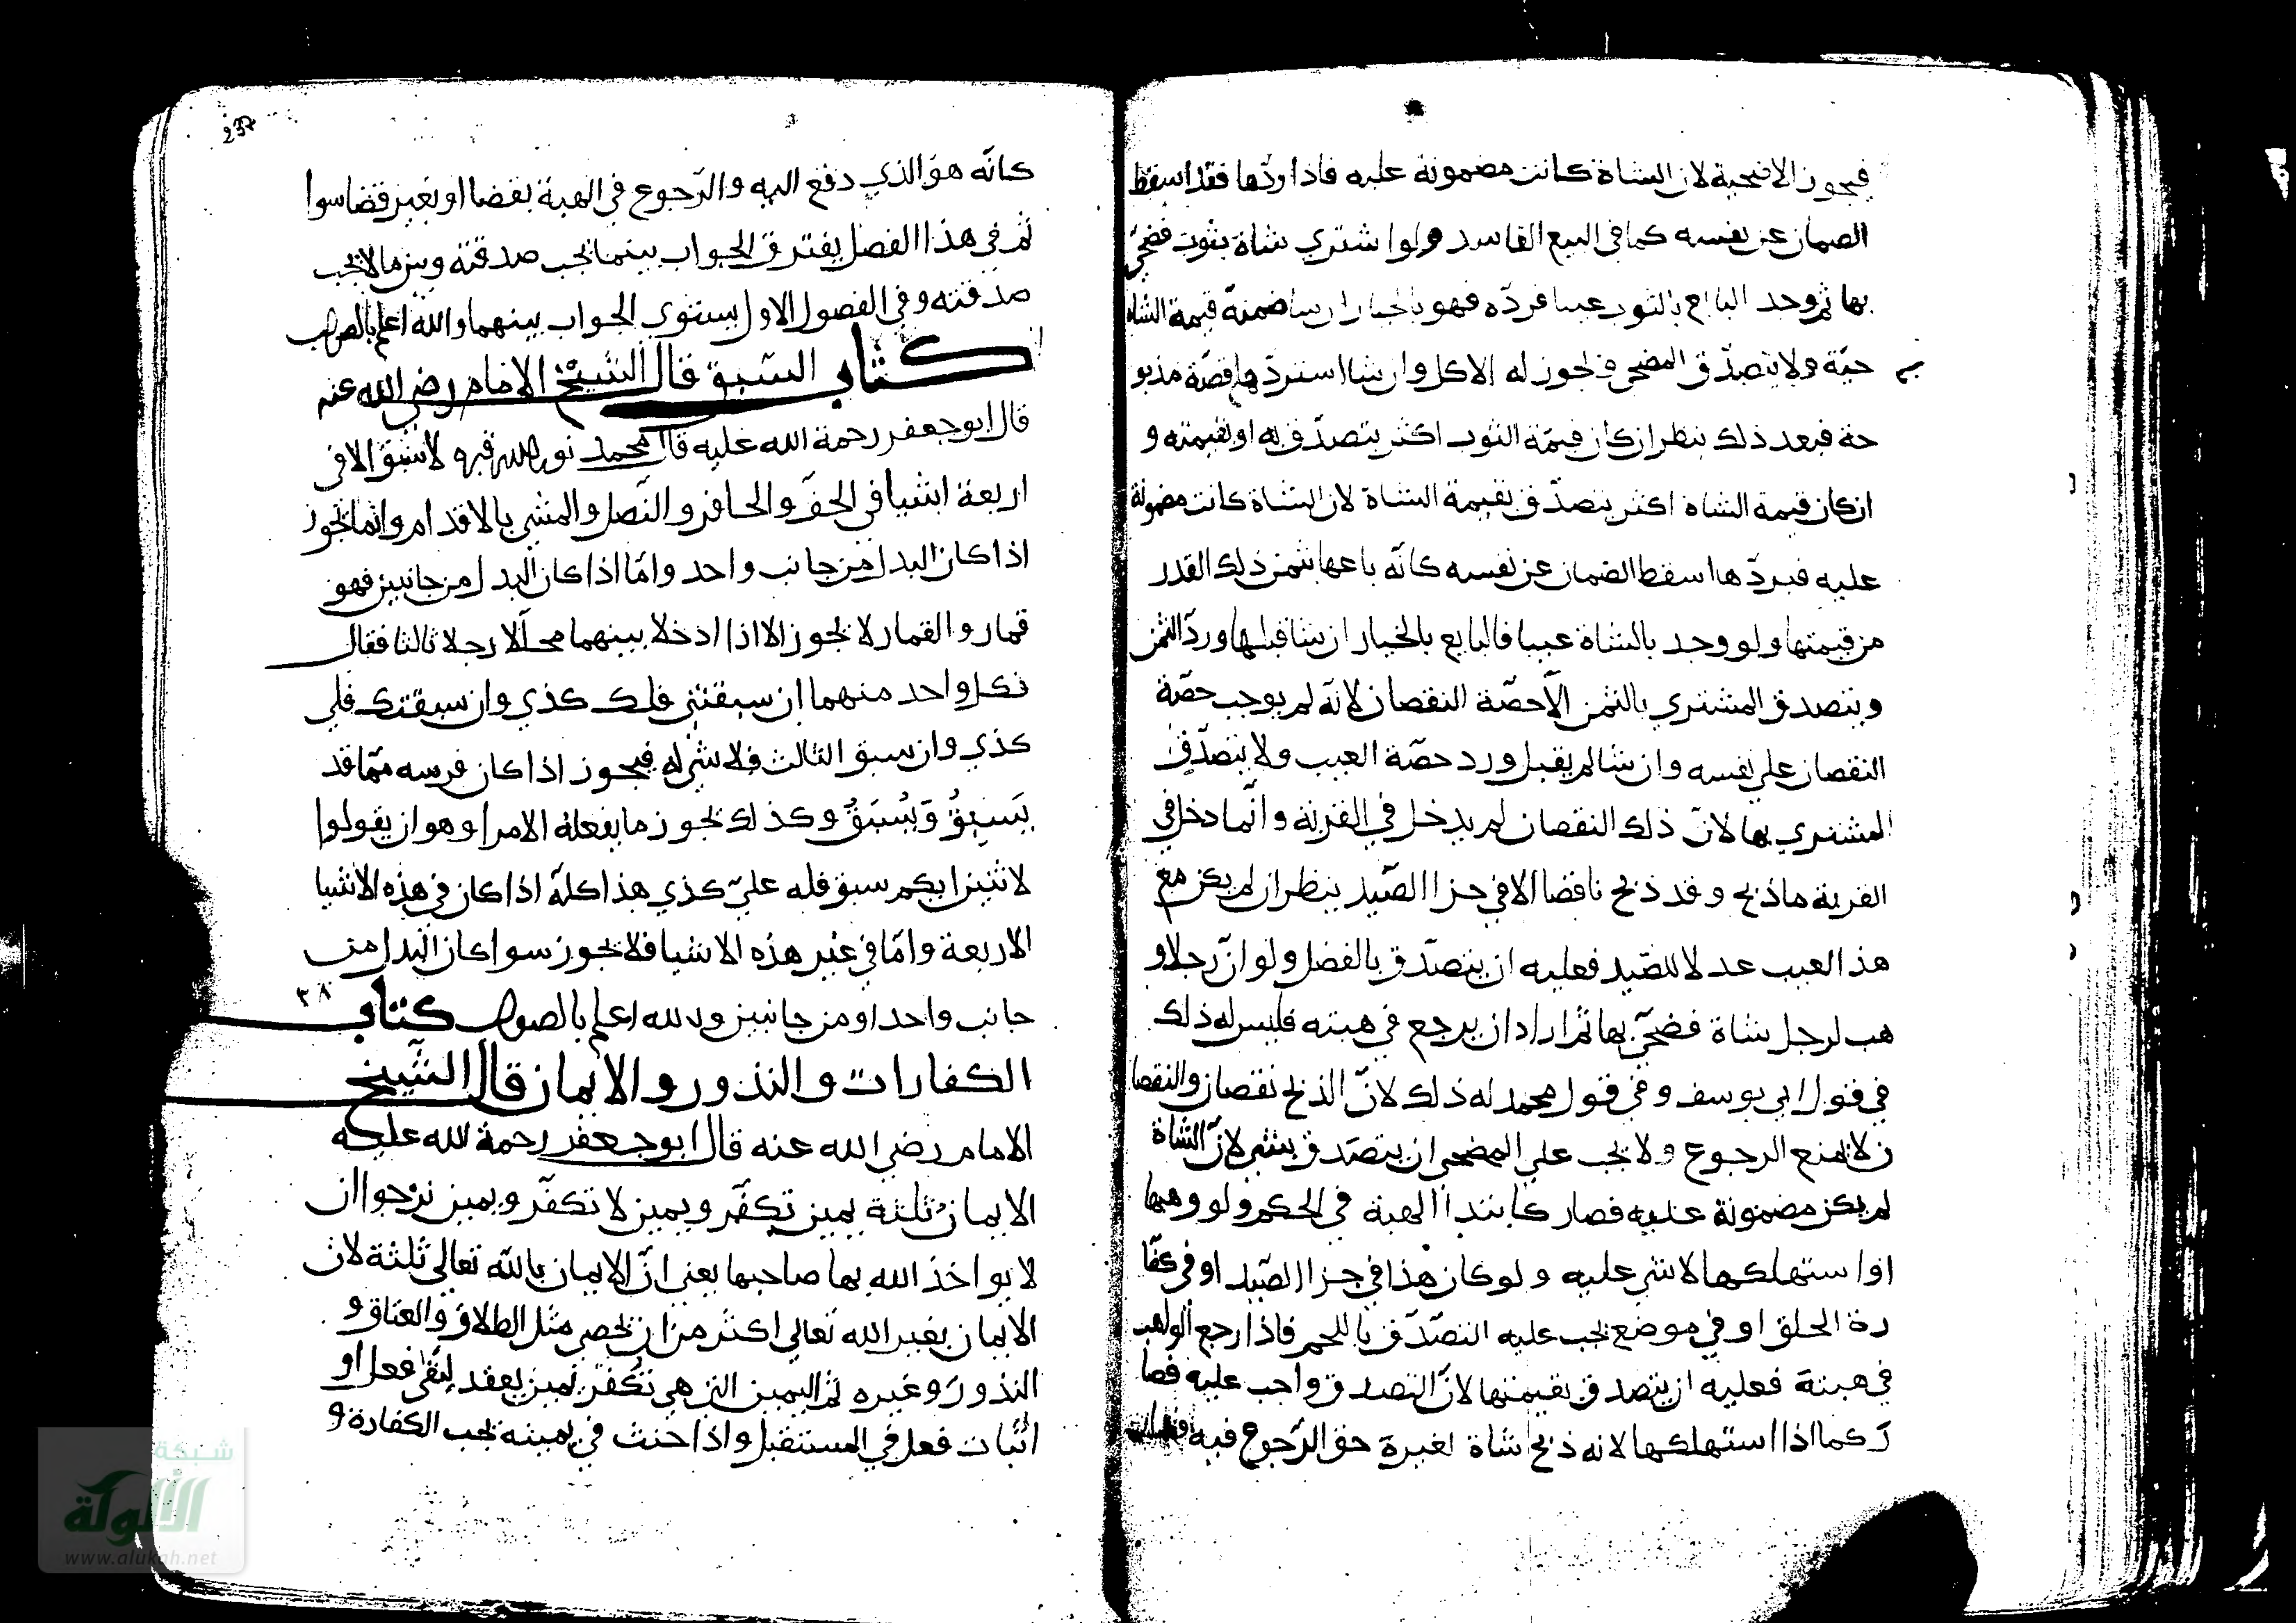 فيجوز الاضحية لان الشاة كانت مضمونة عليه فاذا ردّها فقد اسقط
الضمان عن نفسه كما في البيع الفاسد ولو اشتري شاة بثوب فضحّي
بها ثم وجد البائع بالثوب عيبا فردّه فهو بالخيار ان شا ضمنه قيمة الشاة
حيّة ولا يتصدّق المضحي فيجوز له الاكل وان شا استردّها ناقصة مذبو
حة فبعد ذلك ينظر ان كان قيمة الثوب اكثر يتصدّق به او بقيمته و
ان كان قيمة الشاة اكثر يتصدّق بقيمة الشاة لان الشاة كانت مضمونة
عليه فبردّها اسقط الضمان عن نفسه كانّه باعها بثمن ذلك القدر
من قيمتها ولو وجد بالشاة عيبا فالبايع بالخيار ان شا قبلها وردّ الثمن
ويتصدق المشتري بالثمن الّا حصّة النقصان لانّه لم يوجب حصّة
النقصان علي نفسه وان شا لم يقبل ورد حصّة العيب ولا يتصدّق
المشتري بها لانّ ذلك النقصان لم يدخل في القربة وانّما دخل في
القربة ما ذبح وقد ذبح ناقصا الا في جزا الصّيد ينظر ان لم يكن مع
هذا العيب عدلا للصّيد فعليه ان يتصدّق بالفضل ولو انّ رجلا و
هب لرجل شاة فضحّي بها ثم اراد ان يرجع في هبته فليس له ذلك
في قول ابي يوسف وفي قول محمد له ذلك لانّ الذبح نقصان والنقصا
ن لا يمنع الرجوع ولا يجب علي المضحي ان يتصدق بشي لانّ الشاة
لم يكن مضمونة عليه فصار كابتدا الهبة في الحكم ولو وهبها
او استهلكها لا شي عليه ولو كان هذا في جزا الصّيد او في كفّا
رة الحلق او في موضع يجب عليه التصدّق باللحم فاذا رجع الواهب
في هبته فعليه ان يتصدق بقيمتها لانّ التصدق واجب عليه فصا
ر كما اذا استهلكها لانه ذبح شاة لغيره حق الرّجوع فيه
237
كانّه هو الذي دفع اليه والرّجوع في الهبة بقضا او بغير قضا سوا
ثم في هذا الفصل يفترق الجواب بينما تجب صدقته وبين ما لا يجب
صدقته وفي الفصول الاول يستوي الجواب بينهما والله اعلم بالصواب
كتاب السّبق قال الشيخ الامام رضي الله عنه
قال ابو جعفر رحمة الله عليه قال محمد نور الله قبره لا سبق الا في
اربعة اشيا في الخفّ والحافر والنّصل والمشي بالاقدام وانما يجوز
اذا كان البدل من جانب واحد وامّا اذا كان البدل من جانبين فهو
قمار والقمار لا يجوز الا اذا ادخلا بينهما محلّلا رجلا ثالثا فقال
لكل واحد منهما ان سبقتني فلك كذي وان سبقتك فلي
كذي وان سبق الثالث فلا شي له فيجوز اذا كان فرسه ممّا قد
يَسبِقُ وَيُسْبَقُ وكذلك يجوز ما يفعله الامرا وهو ان يقولوا
لاثنين ايكم سبق فله عليّ كذي هذا كلّه اذا كان في هذه الاشيا
الاربعة وامّا في غير هذه الاشيا فلا يجوز سوا كان البدل من
جانب واحد او من جانبين والله اعلم بالصواب كتاب ٣٨
الكفارات والنذور والايمان قال الشّيخ
الامام رضي الله عنه قال ابو جعفر رحمة الله عليه
الايمان ثلثة يمين تكفّر ويمين لا تكفّر ويمين نرجوا ان
لا يواخذ الله بها صاحبها يعني انّ الايمان بالله تعالي ثلثة لان
الايمان بغير الله تعالي اكثر من ان يحصي مثل الطلاق والعتاق و
النذور وغيره ثم اليمين التي هي تكفّر يمين يعقد لنفي فعل او
اثبات فعل في المستقبل واذا حنث في يمينه يجب الكفارة و
شبكة
الألوكة
www.alukah.net